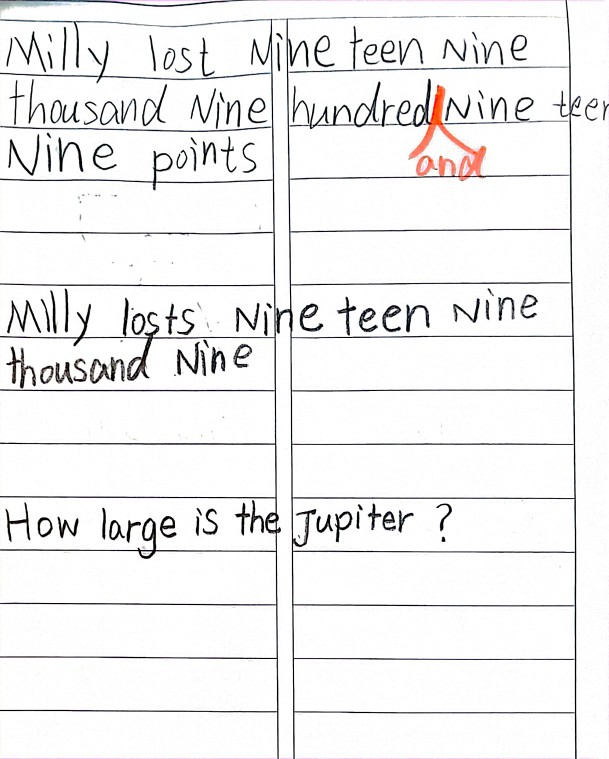 Milly lost Nine teen Nine
thousand Nine hundred Nine teen
and
Nine points
Milly losts Nine teen Nine
thousand Nine
How large is the Jupiter ?